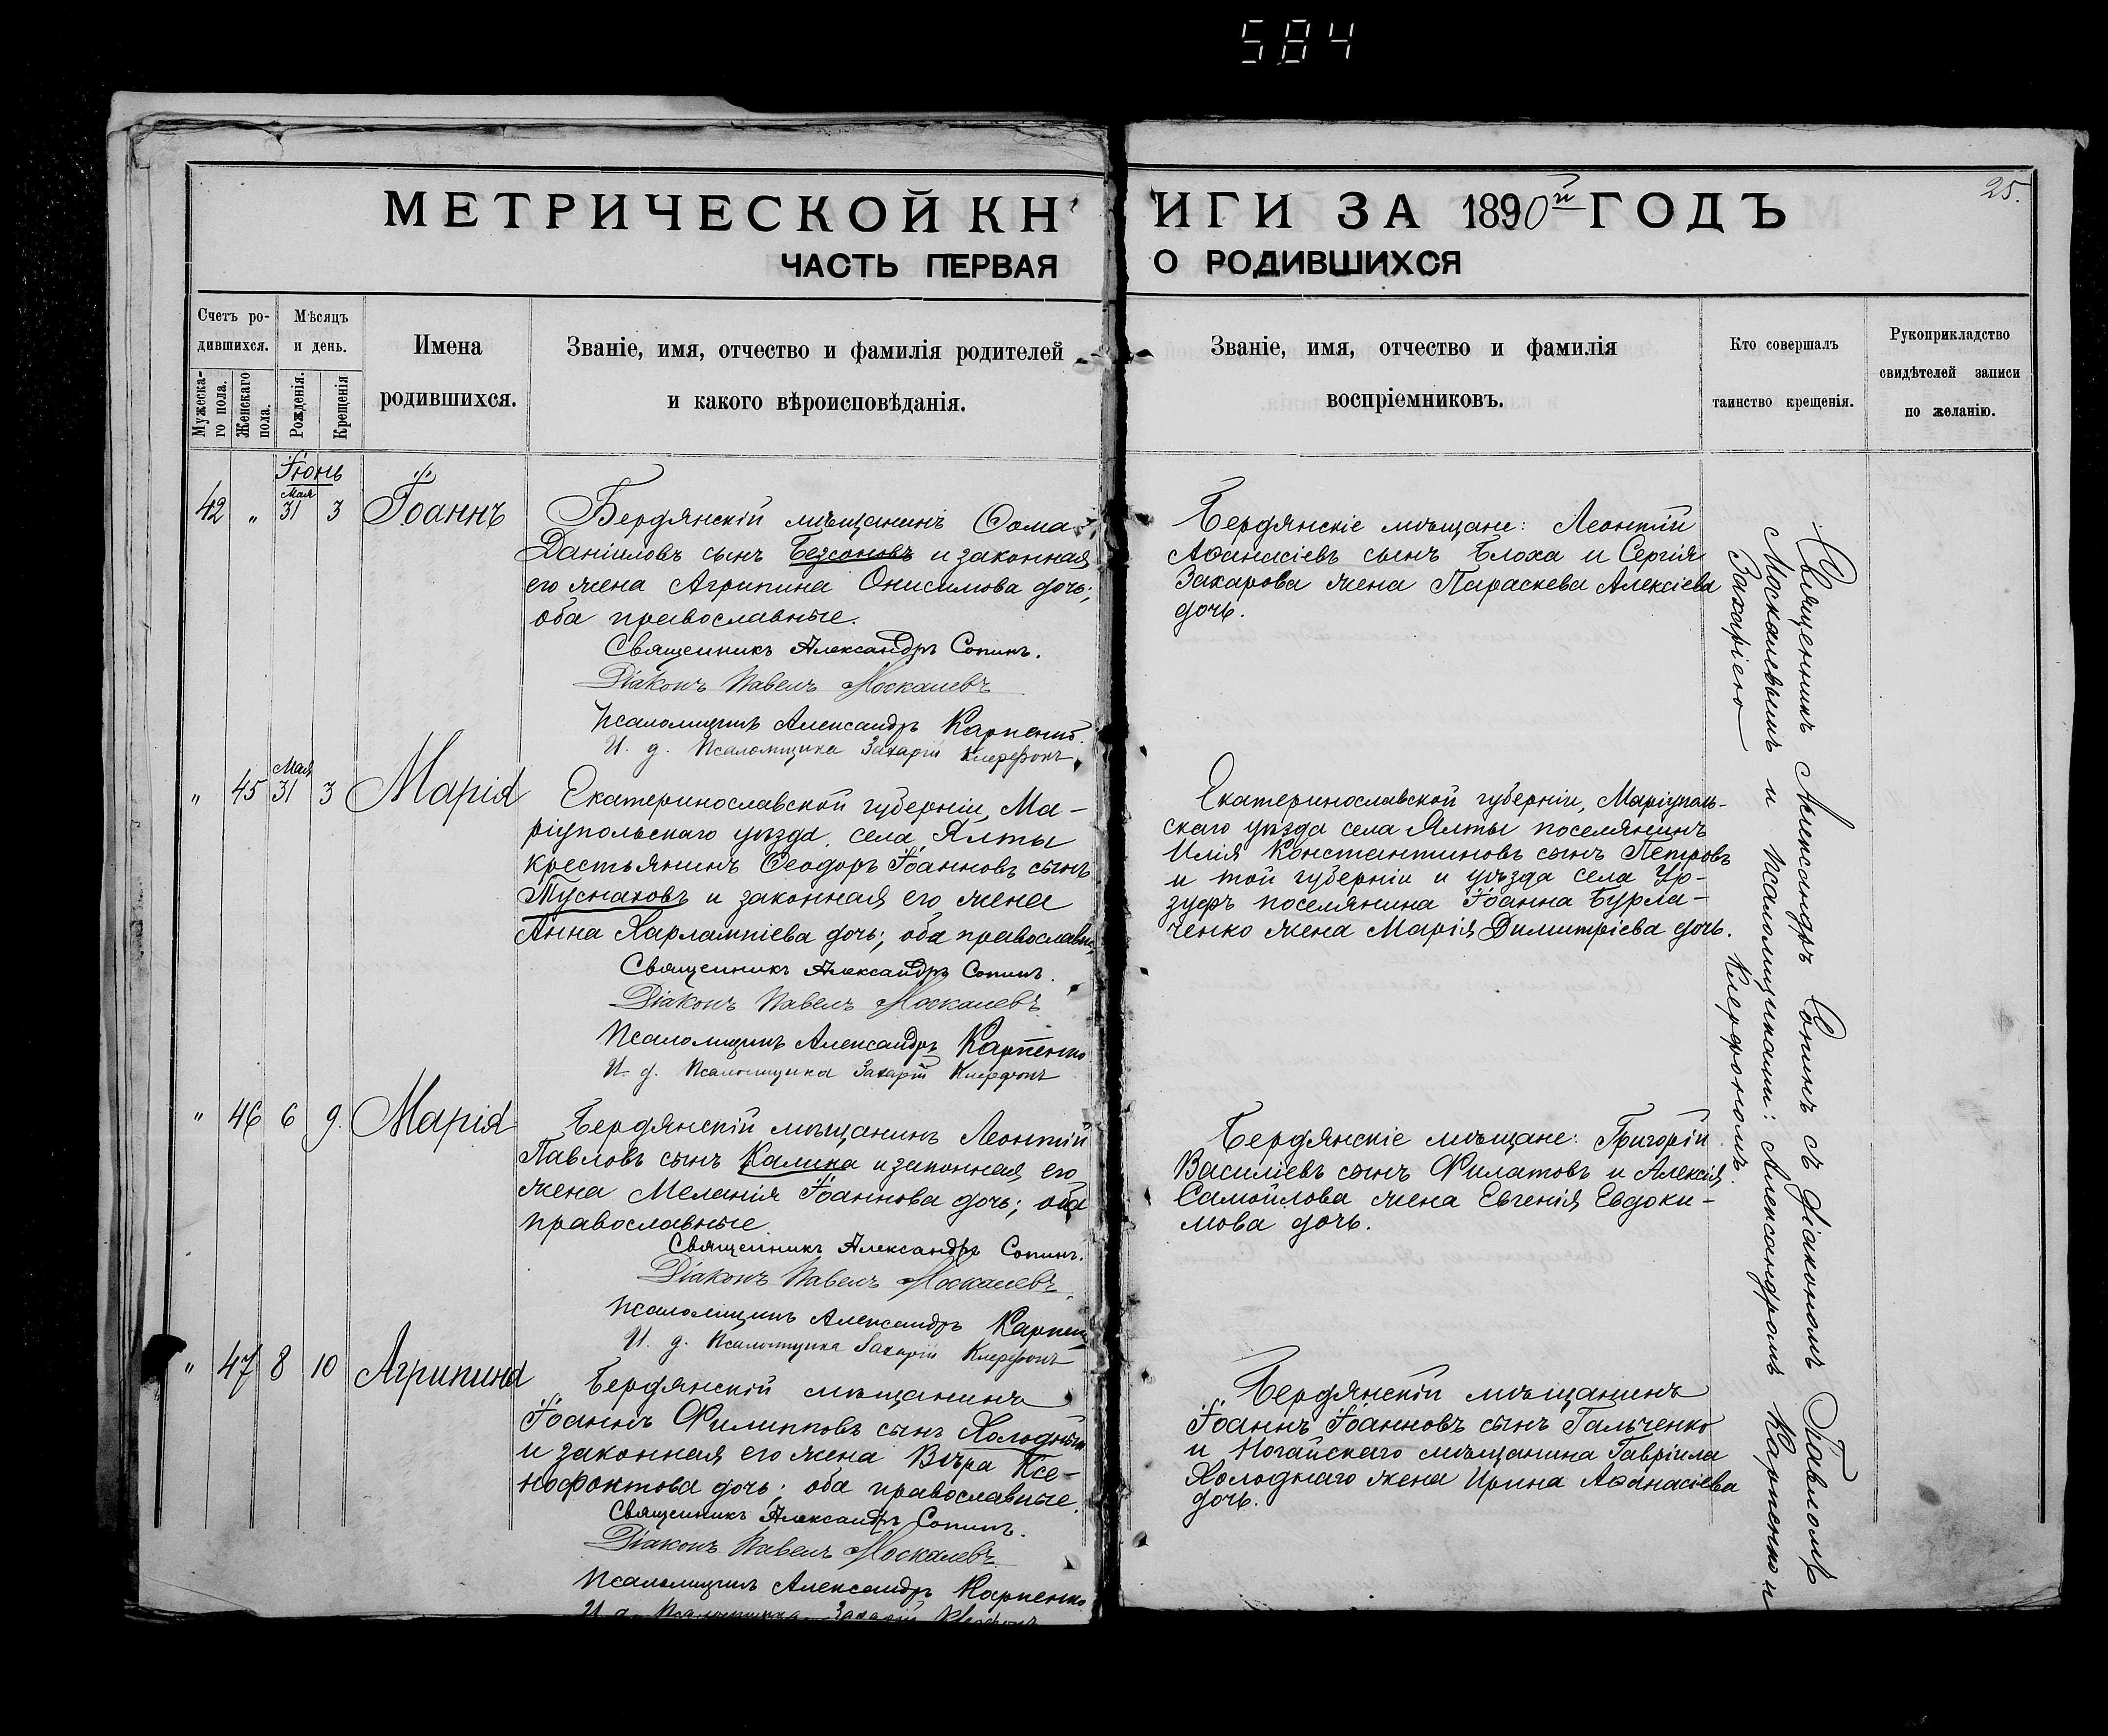 584
25.
МЕТРИЧЕСКОЙ КН ИГИ ЗА 1890й ГОДЪ
ЧАСТЬ ПЕРВАЯ О РОДИВШИХСЯ
Счетъ ро-
дившихся.
Мужеска-
го пола.
Женскаго
пола.
Мѣсяцъ
и день.
Рожденія.
Крещенія
Имена
родившихся.
Званіе, имя, отчество и фамилія родителей
и какого вѣроисповѣданія.
Званіе, имя, отчество и фамилія
воспріемниковъ.
Кто совершалъ
таинство крещенія.
Рукоприкладство
свидѣтелей записи
по желанію.
Іюнь
42 " Мая 31 3 Іоаннъ
Бердянскій мѣщанинъ Ѳома
Даніиловъ сынъ Безсоновъ и законная
его жена Агрипина Онисимова дочь;
оба православные.
Священникъ Александръ Сопинъ.
Діаконъ Павелъ Москалевъ
Псаломщикъ Александръ Карпенко.
И. д. Псаломщика Захарій Клерфонъ
Бердянскіе мѣщане: Леонтій
Аѳанасіевъ сынъ Блоха и Сергія
Захарова жена Параскева Алексіева
дочь.
" 45 Мая 31 3 Марія
Екатеринославской губерніи, Ма-
ріупольскаго уѣзда, села Ялты
крестьянинъ Ѳеодоръ Іоанновъ сынъ
Туснаховъ и законная его жена
Анна Харлампіева дочь; оба православн.
Священникъ Александръ Сопинъ.
Діаконъ Павелъ Москалевъ
Псаломщикъ Александръ Карпенко
И. д. Псаломщика Захарій Клерфонъ
Екатеринославской губерніи, Маріуполь-
скаго уѣзда села Ялты поселянинъ
Илія Константиновъ сынъ Петровъ
и той губерніи и уѣзда села Ур-
зуфъ поселянина Іоанна Бурла-
ченко жена Марія Димитріева дочь.
" 46 6 9. Марія
Бердянскій мѣщанинъ Леонтій
Павловъ сынъ Калина и законная его
жена Меланія Іоаннова дочь; оба
православные
Священникъ Александръ Сопинъ.
Діаконъ Павелъ Москалевъ.
Псаломщикъ Александръ Карпен
И. д. Псаломщика Захарій Клерфонъ
Бердянскіе мѣщане: Григорій
Василіевъ сынъ Филатовъ и Алексія
Самойлова жена Евгенія Евдоки-
мова дочь.
" 47 8 10 Агрипина
Бердянскій мѣщанинъ
Іоаннъ Филипповъ сынъ Холодный
и законная его жена Вѣра Ксе-
нофонтова дочь; оба православные.
Священникъ Александръ Сопинъ.
Діаконъ Павелъ Москалевъ
Псаломщикъ Александръ Карпенко
И. д. Псаломщика Захарій Клерфонъ
Бердянскій мѣщанинъ
Іоаннъ Іоанновъ сынъ Гальченко
и Ногайскаго мѣщанина Гавріила
Холоднаго жена Ирина Аѳанасіева
дочь.
Священникъ Александръ Сопинъ съ діакономъ Павломъ
Москалевымъ и псаломщиками: Александромъ Карпенко и
Захаріею Клерфономъ.